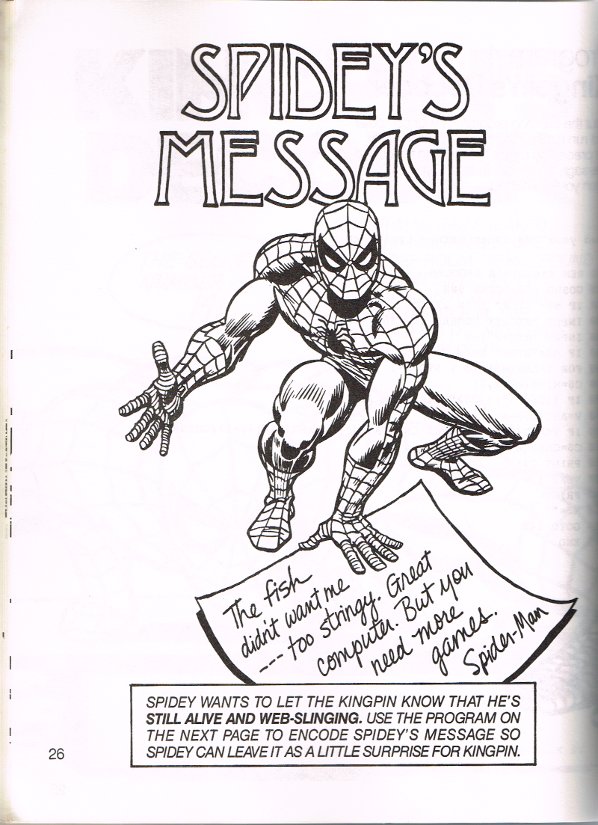 SPIDEY'S
MESSAGE
The fish
didn't want me
--- too stringy. Great
computer. But you
need more
games.
Spider-Man
SPIDEY WANTS TO LET THE KINGPIN KNOW THAT HE'S
STILL ALIVE AND WEB-SLINGING. USE THE PROGRAM ON
THE NEXT PAGE TO ENCODE SPIDEY'S MESSAGE SO
SPIDEY CAN LEAVE IT AS A LITTLE SURPRISE FOR KINGPIN.
26